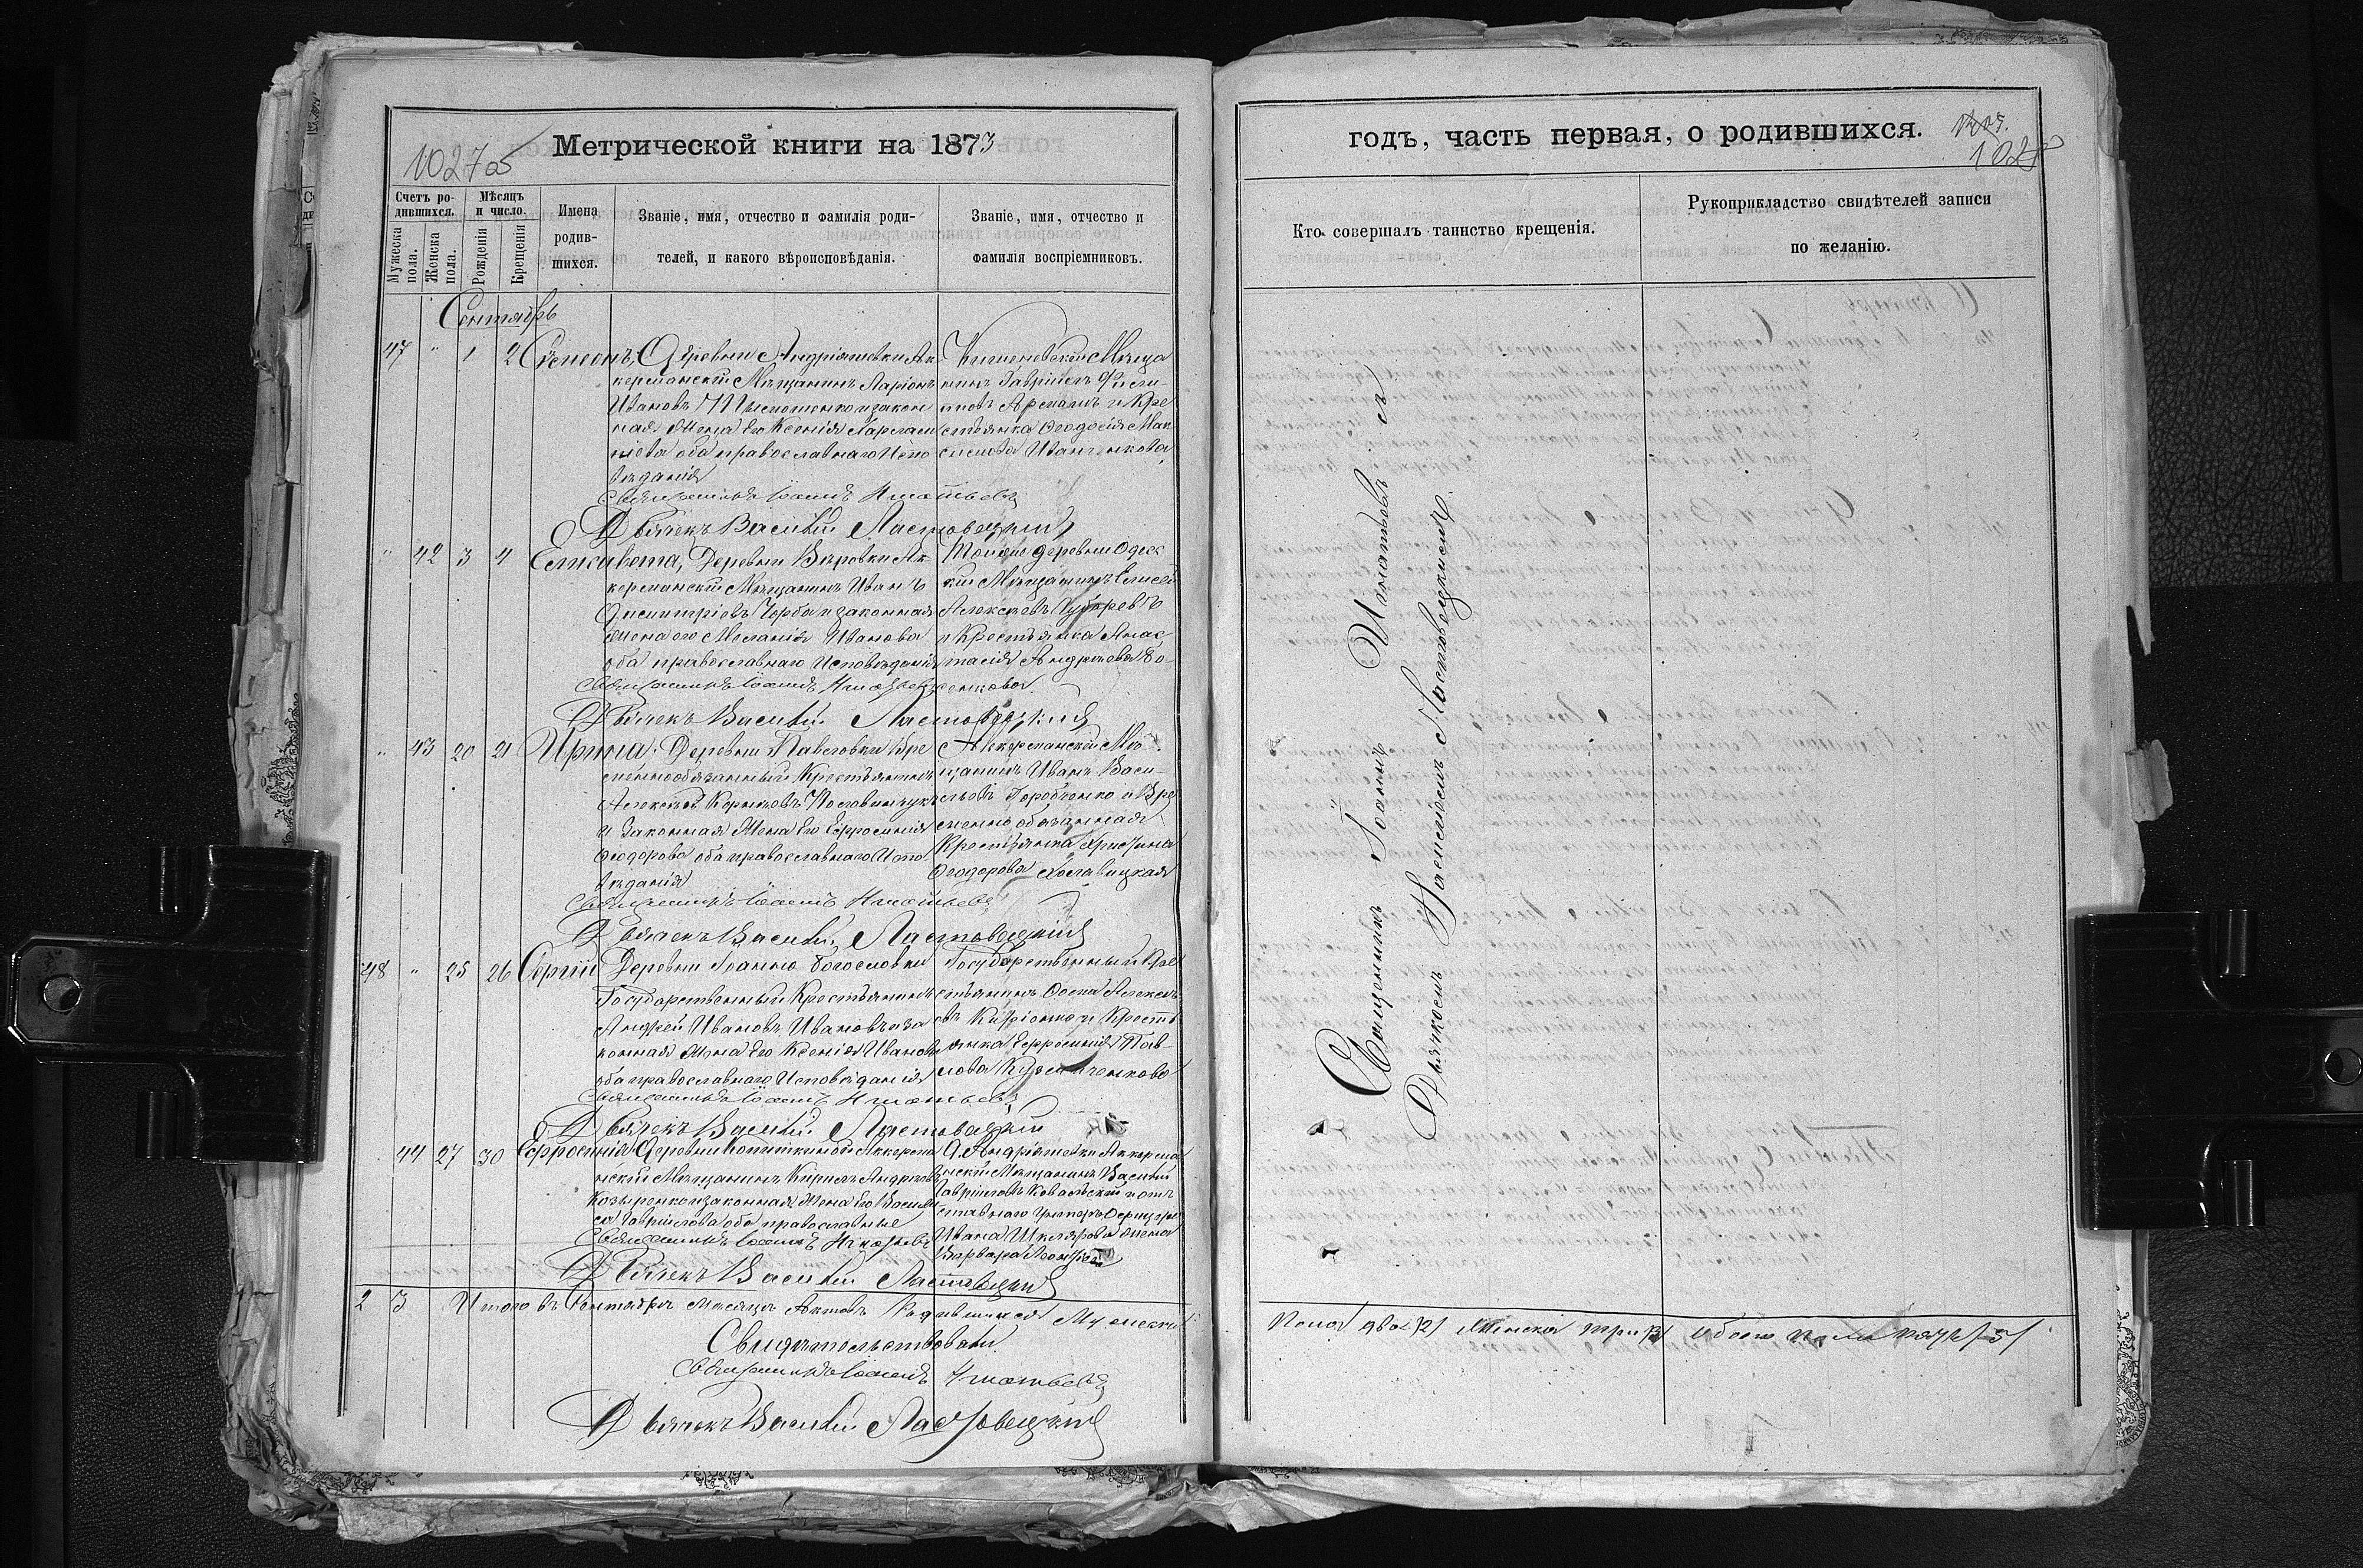 1027об
Метрической книги на 1873
Счетъ родившихся.
Мужеска пола.
Женска пола.
Мѣсяцъ и число.
Рожденія
Крещенія
Имена родившихся.
Званіе, имя, отчество и фамилія родителей, и какого вѣроисповѣданія.
Званіе, имя, отчество и фамилія воспріемниковъ.
Сентябрь
47 " 1 2
Деревни Андріяшевки Ак-
керманскій Мѣщанинъ Ларіонъ
Ивановъ и закон
ная Жена Его Ксенія
оба православнаго Испо
вѣданія
Кишеневскій Мѣща
нинъ Гавріилъ Фили-
повъ и Кре
стьянка Феодосія Мак
симова Иванченкова
Священникъ Іоаннъ Игнатьевъ
Дьячекъ Василій Ластовецкій
" 42 3 4 Елисавета,
Деревни Вѣровки Ак-
керманскій Мѣщанинъ Иванъ
Димитріевъ Чорба и законная
Жена его Меланія Иванова
оба православнаго Исповѣданія
Тойже деревни Одес
кій Мѣщанинъ Елисей
Алексѣевъ
и Крестьянка Анас
тасія Андреева Бо-
сенкова
Священникъ Іоаннъ Игнатьевъ
Дьячекъ Василій Ластовецкій
" 43 20 21 Ирина.
Деревни Павловки Вре
меннообязанный Крестьянинъ
Алексѣй Корнѣевъ
и Законная Жена Его Ефросинія
Феодорова оба православнаго Испо
вѣданія
Аккерманскій Мѣ
щанинъ Иванъ Васи-
льевъ Горобченко и Вре
менно обязанная
Крестьянка Христина
Феодорова
Священникъ Іоаннъ Игнатьевъ
Дьячекъ Василій Ластовецкій
48 " 25 26 Сергій
Деревни Іоанно Богословки
Государственный Крестьянинъ
Андрей Ивановъ Ивановъ и за
конная Жена Его Ксенія Иванова
оба православнаго Исповѣданія
Государственный Кре
стьянинъ Фома Алексѣ
евъ и Кресть
янка Ефросинія Пав
лова
Священникъ Іоаннъ Игнатьевъ
Дьячекъ Василій Ластовецкій
44 27 30 Ефросинія
Деревни Копыткиной Аккерма
нскій Мѣщанинъ Кирилъ Андреевъ
Козыренко и законная Жена Его Васили
са Гавріилова оба православные
Д. Андріяшевки Аккерма
нскій Мѣщанинъ Василій
Гавріиловъ Ковальскій и от
ставнаго Унтеръ Офицера
Ивана Шклярова Жена
Варвара
Священникъ Іоаннъ Игнатьевъ
Дьячекъ Василій Ластовецкій
2 3 Итого въ Сентябрѣ мѣсяцѣ Актовъ Родившихся Мужеска
Свидѣтельствовали
Священникъ Іоаннъ Игнатьевъ
Дьячекъ Василій Ластовецкій
годъ, часть первая, о родившихся.
1028
Кто совершалъ таинство крещенія.
Рукоприкладство свидѣтелей записи по желанію.
Священникъ Іоаннъ Игнатьевъ съ
Дьячкомъ Василіемъ Ластовецкимъ
Пола два /2/ Женска три /3/ обоего пола пять /5/